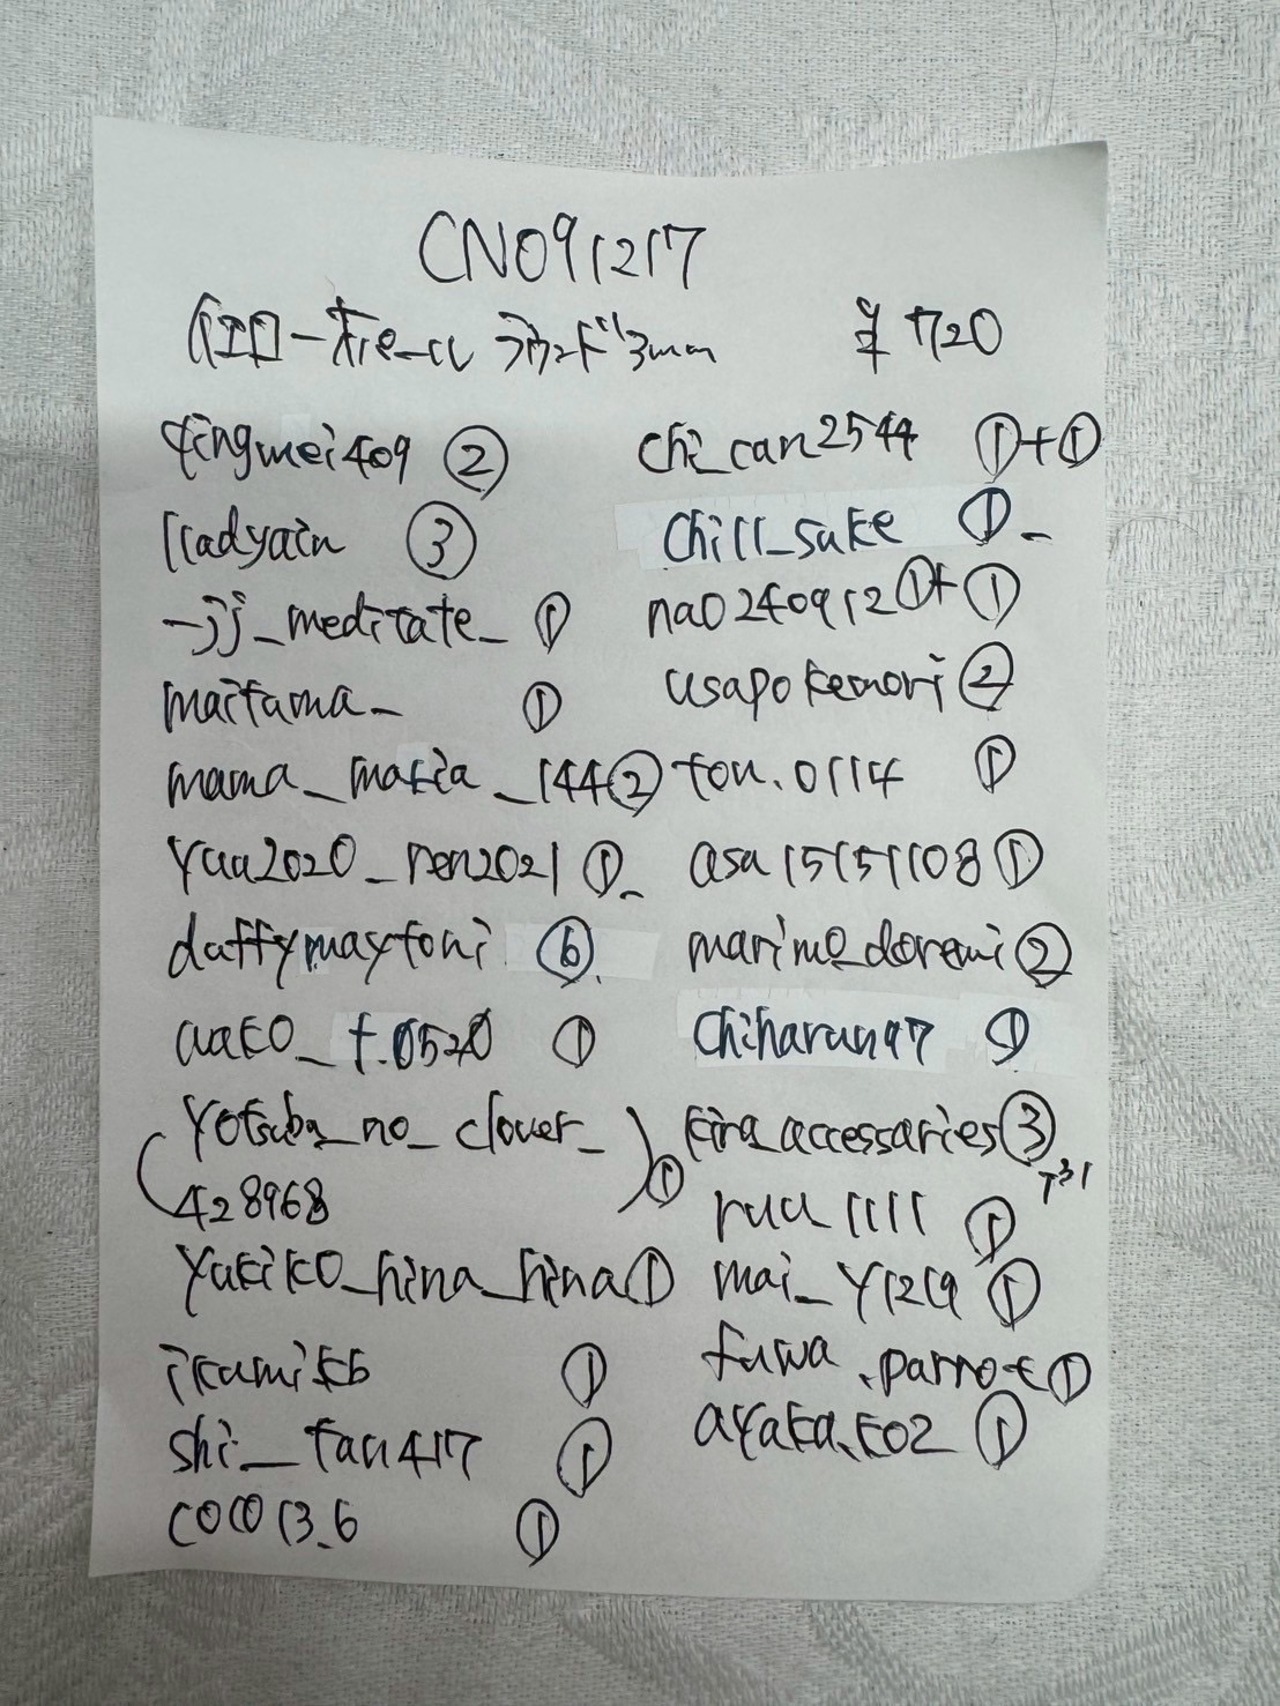 CN091217
イエロートルマリン ラウンド3mm ¥720
qingmei409 ②
lladyain ③
-jj_meditate_ ①
maitama_ ①
mama_maria_144 ②
yuu2020_ren2021 ①
daffymaytoni ⑥
aako_t.0520 ①
(yotsuba_no_clover_
428968) ①
yukiko_hina_hina ①
ikumikb ①
shi_tan417 ①
coco13_6 ①
chi_can2544 ①+①
chill_sake ①
nao240912 ①+①
usapokemori ②
ton.0114 ①
asa15151108 ①
marimo_doremi ②
chiharun97 ①
kira_accessaries ③
ruu1111 ①
mai_y1219 ①
fuwa.parrot ①
ayaka.k02 ①